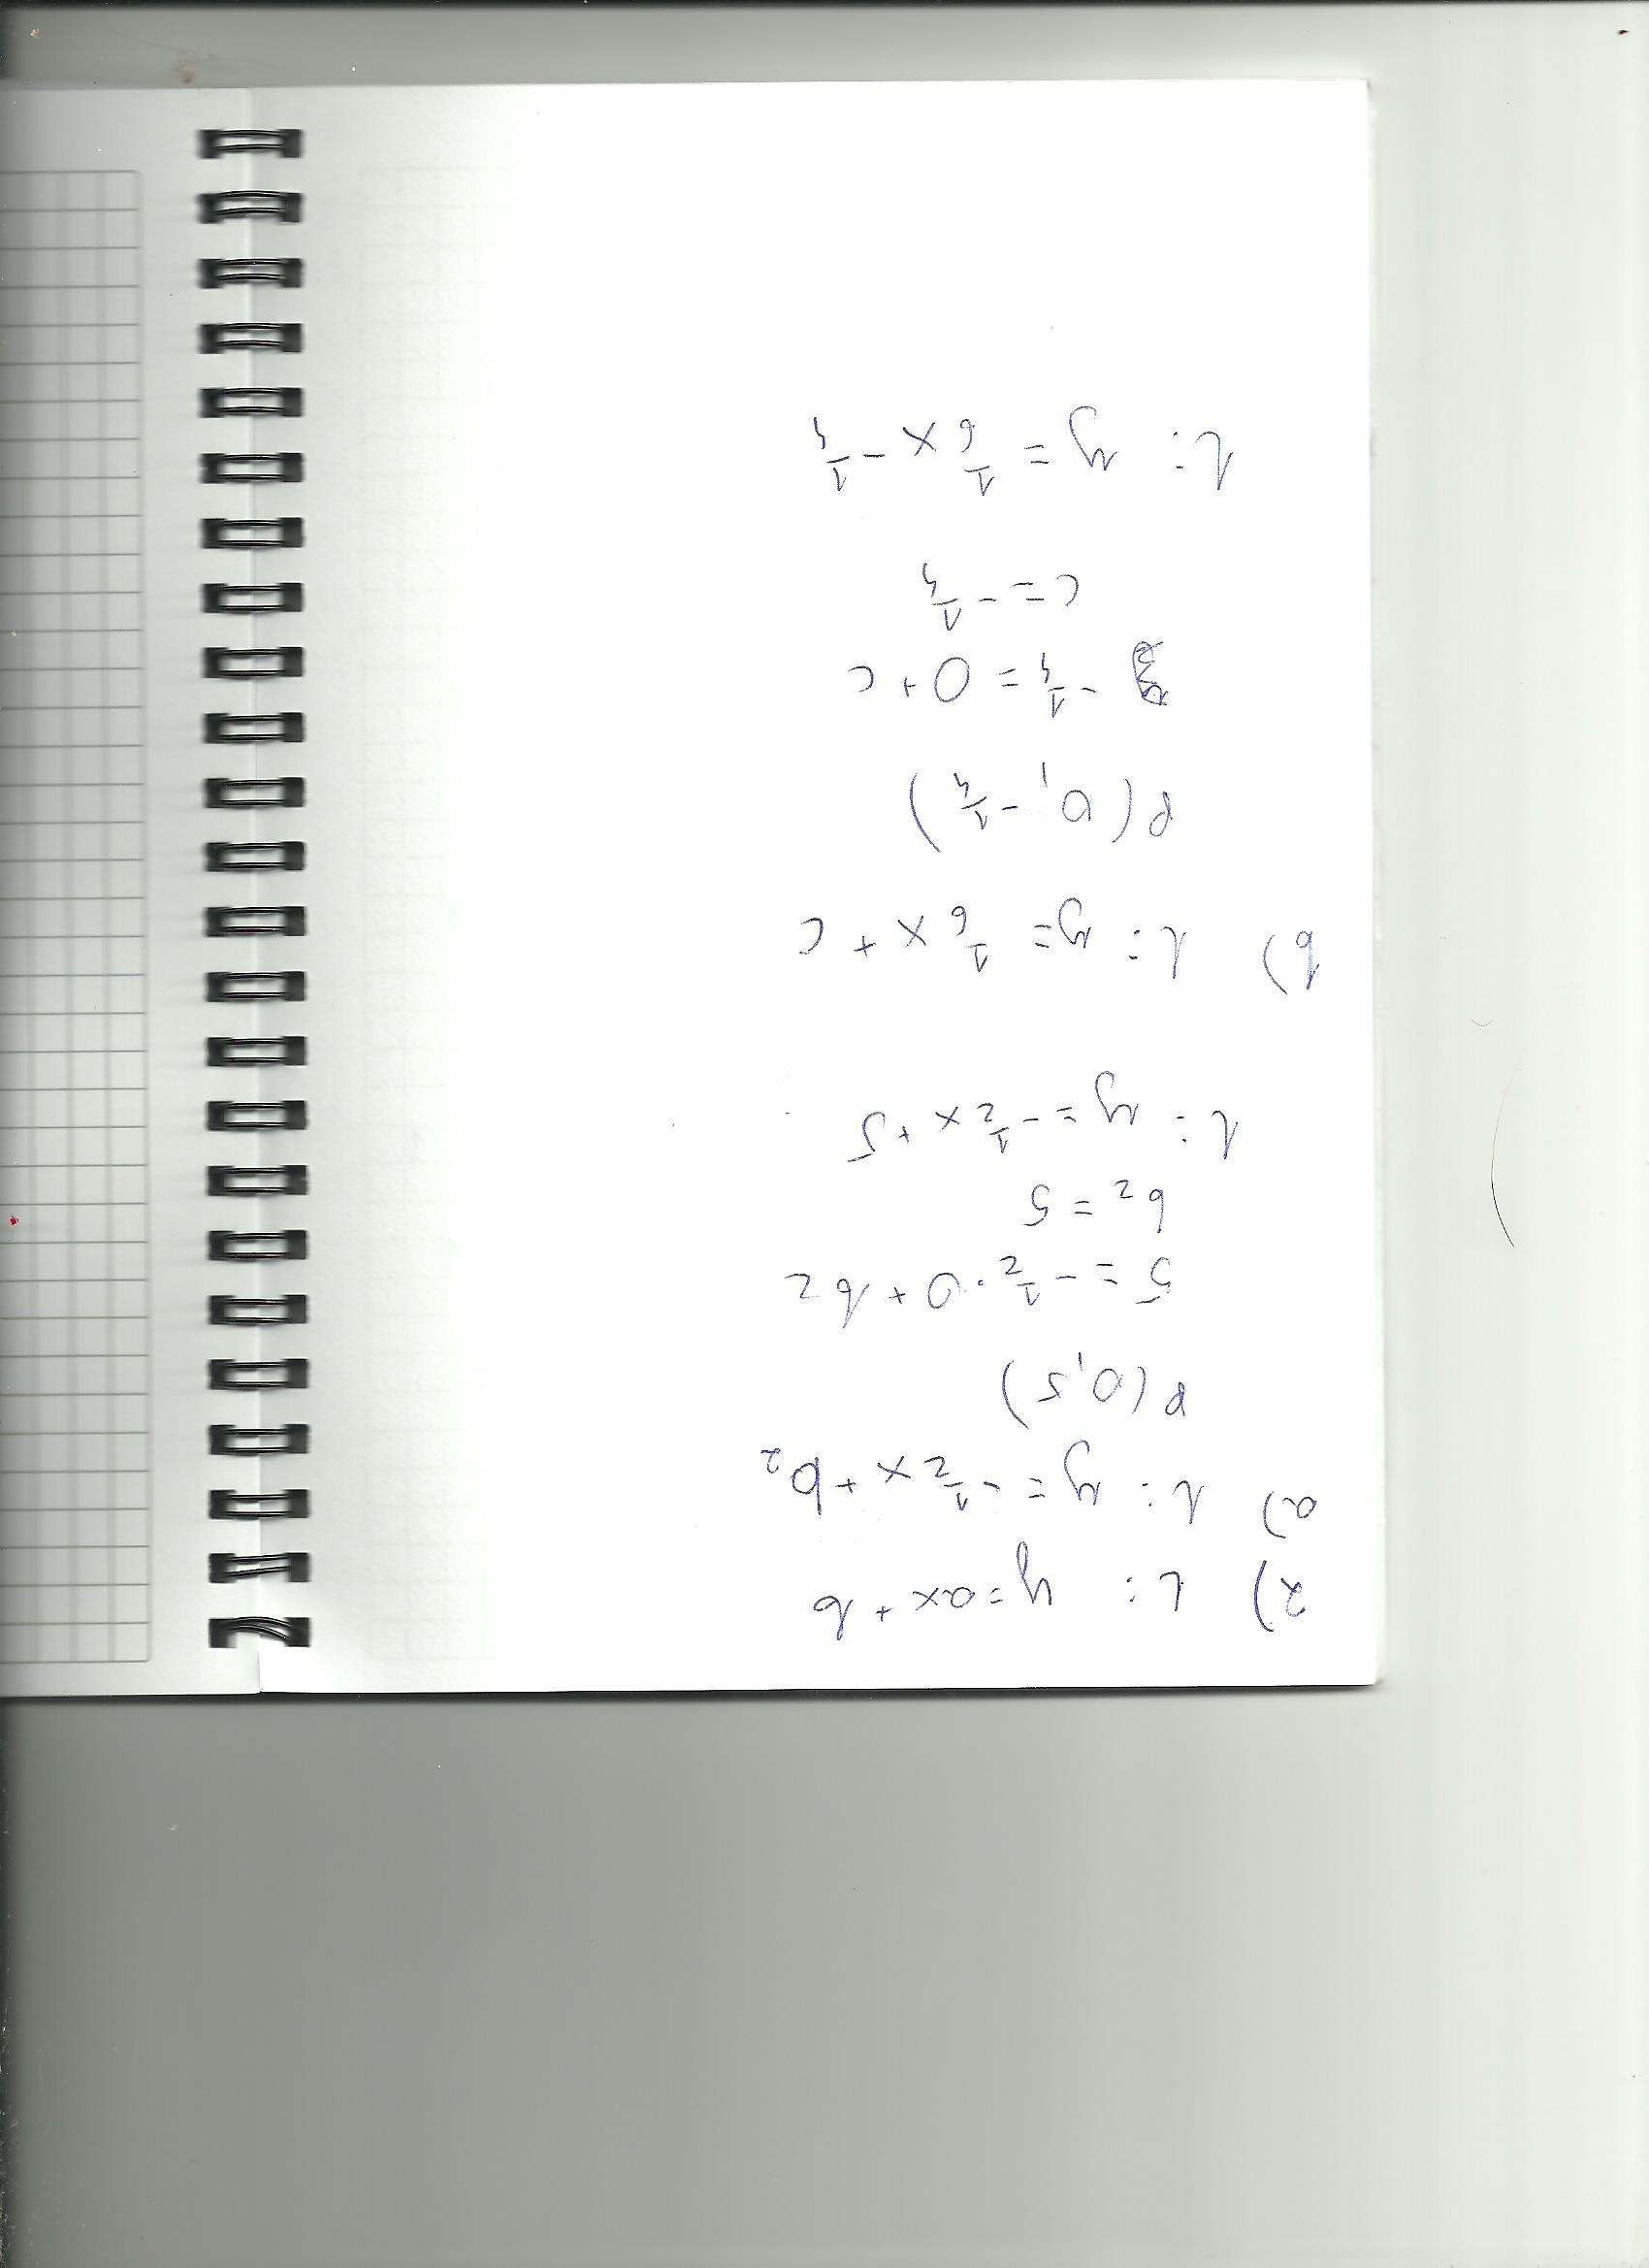 2) L: y = ax + b
a) L: y = -1/2 x + b₂
P(0,5)
5 = -1/2 · 0 + b2
b2 = 5
L: y = -1/2 x + 5
b) L: y = 1/6 x + c
P(0, -1/4)
-1/4 = 0 + c
c = -1/4
L: y = 1/6 x - 1/4